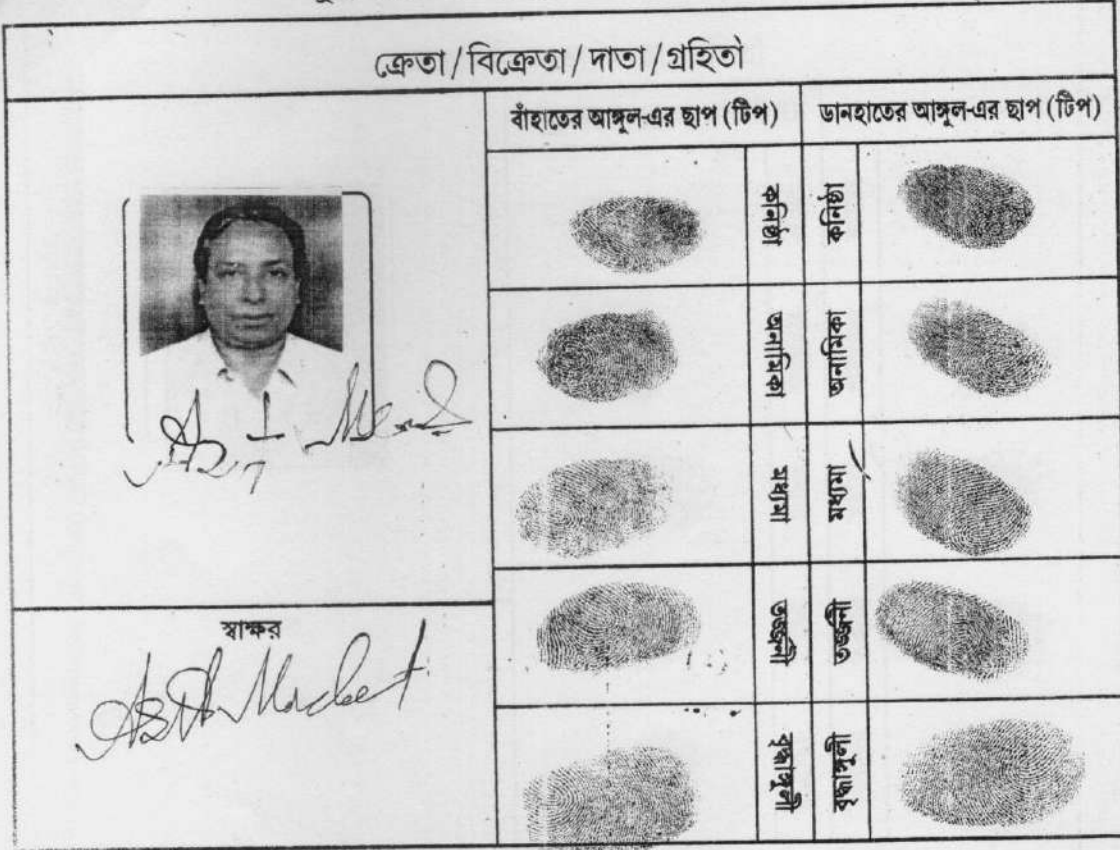 ক্রেতা / বিক্রেতা / দাতা / গ্রহিতা
বাঁহাতের আঙ্গুল-এর ছাপ (টিপ)
ডানহাতের আঙ্গুল-এর ছাপ (টিপ)
কনিষ্ঠা
কনিষ্ঠা
অনামিকা
অনামিকা
মধ্যমা
মধ্যমা
তর্জ্জনী
তর্জ্জনী
বৃদ্ধাঙ্গুলী
বৃদ্ধাঙ্গুলী
স্বাক্ষর